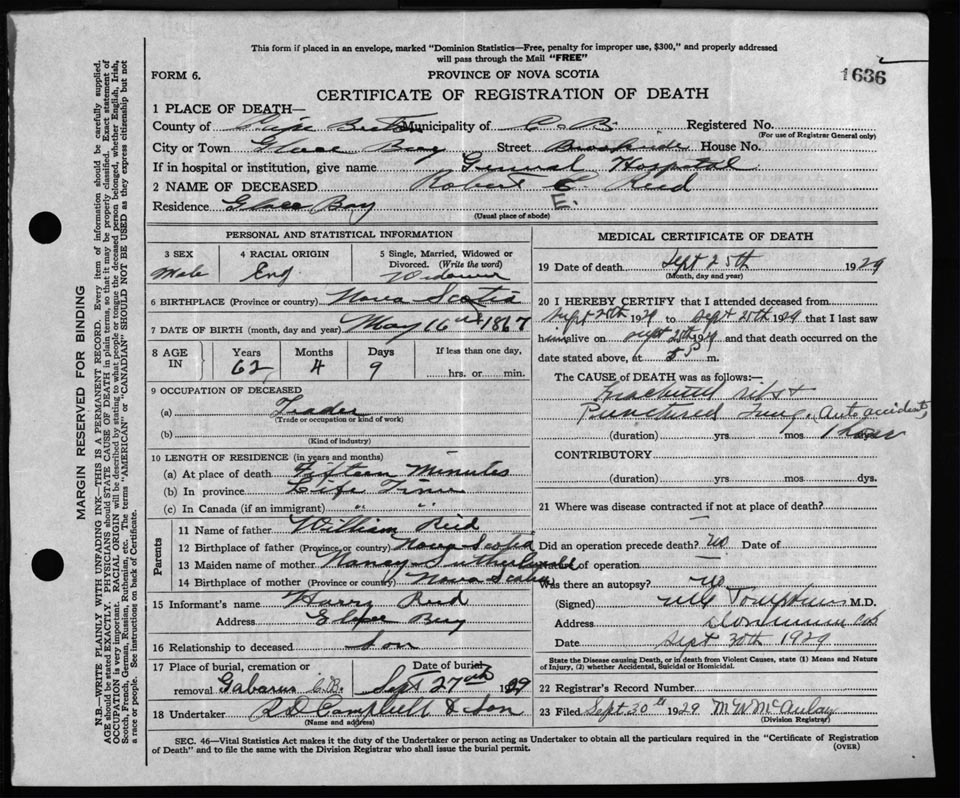 This form if placed in an envelope, marked "Dominion Statistics—Free, penalty for improper use, $300," and properly addressed
will pass through the Mail "FREE"
FORM 6.
PROVINCE OF NOVA SCOTIA
1636
CERTIFICATE OF REGISTRATION OF DEATH
1 PLACE OF DEATH—
County of Cape Breton Municipality of C. B. Registered No.
(For use of Registrar General only)
City or Town Glace Bay Street Brookside House No.
If in hospital or institution, give name General Hospital
2 NAME OF DECEASED Robert E. Reid
E.
Residence Glace Bay
(Usual place of abode)
PERSONAL AND STATISTICAL INFORMATION
3 SEX 4 RACIAL ORIGIN 5 Single, Married, Widowed or
Divorced. (Write the word)
Male Eng Widower
6 BIRTHPLACE (Province or country) Nova Scotia
7 DATE OF BIRTH (month, day and year) May 16th 1867
8 AGE IN Years Months Days If less than one day,
62 4 9 hrs. or min.
9 OCCUPATION OF DECEASED
(a) Trader
(Trade or occupation or kind of work)
(b)
(Kind of industry)
10 LENGTH OF RESIDENCE (in years and months)
(a) At place of death Fifteen Minutes
(b) In province Life Time
(c) In Canada (if an immigrant) " "
Parents
11 Name of father William Reid
12 Birthplace of father (Province or country) Nova Scotia
13 Maiden name of mother Nancy Sutherland
14 Birthplace of mother (Province or country) Nova Scotia
15 Informant's name Harry Reid
Address Glace Bay
16 Relationship to deceased Son
17 Place of burial, cremation or Date of burial
removal Gabarus C.B. Sept 27th 1929
18 Undertaker Campbell & Son
(Name and address)
MEDICAL CERTIFICATE OF DEATH
19 Date of death Sept 25th 1929
(Month, day and year)
20 I HEREBY CERTIFY that I attended deceased from
Sept 25th 1929 to Sept 25th 1929 that I last saw
him alive on Sept 25th 1929 and that death occurred on the
date stated above, at 5 P m.
The CAUSE of DEATH was as follows:—
Fractured ribs &
Punctured lung. (Auto accident)
(duration) yrs. mos 1 hour
CONTRIBUTORY
(duration) yrs. mos. dys.
21 Where was disease contracted if not at place of death?
Did an operation precede death? No Date of
of operation
Was there an autopsy? No
(Signed) Tompkins M.D.
Address Dominion C.B.
Date Sept 30th 1929
State the Disease causing Death, or in death from Violent Causes, state (1) Means and Nature
of Injury, (2) whether Accidental, Suicidal or Homicidal.
22 Registrar's Record Number
23 Filed Sept 30th 1929 M W McAulay
(Division Registrar)
SEC. 46—Vital Statistics Act makes it the duty of the Undertaker or person acting as Undertaker to obtain all the particulars required in the "Certificate of Registration
of Death" and to file the same with the Division Registrar who shall issue the burial permit.
(OVER)
MARGIN RESERVED FOR BINDING
N.B.—WRITE PLAINLY WITH UNFADING INK—THIS IS A PERMANENT RECORD. Every item of information should be carefully supplied.
AGE should be stated EXACTLY. PHYSICIANS should STATE CAUSE OF DEATH in plain terms, so that it may be properly classified. Exact statement of
OCCUPATION is very important. RACIAL ORIGIN will be described by stating to what people or tongue the deceased person belonged, whether English, Irish,
Scotch, French, German, Russian, Ruthenian, etc. The terms "AMERICAN" or "CANADIAN" SHOULD NOT BE USED as they express citizenship but not
a race or people. See instructions on back of Certificate.